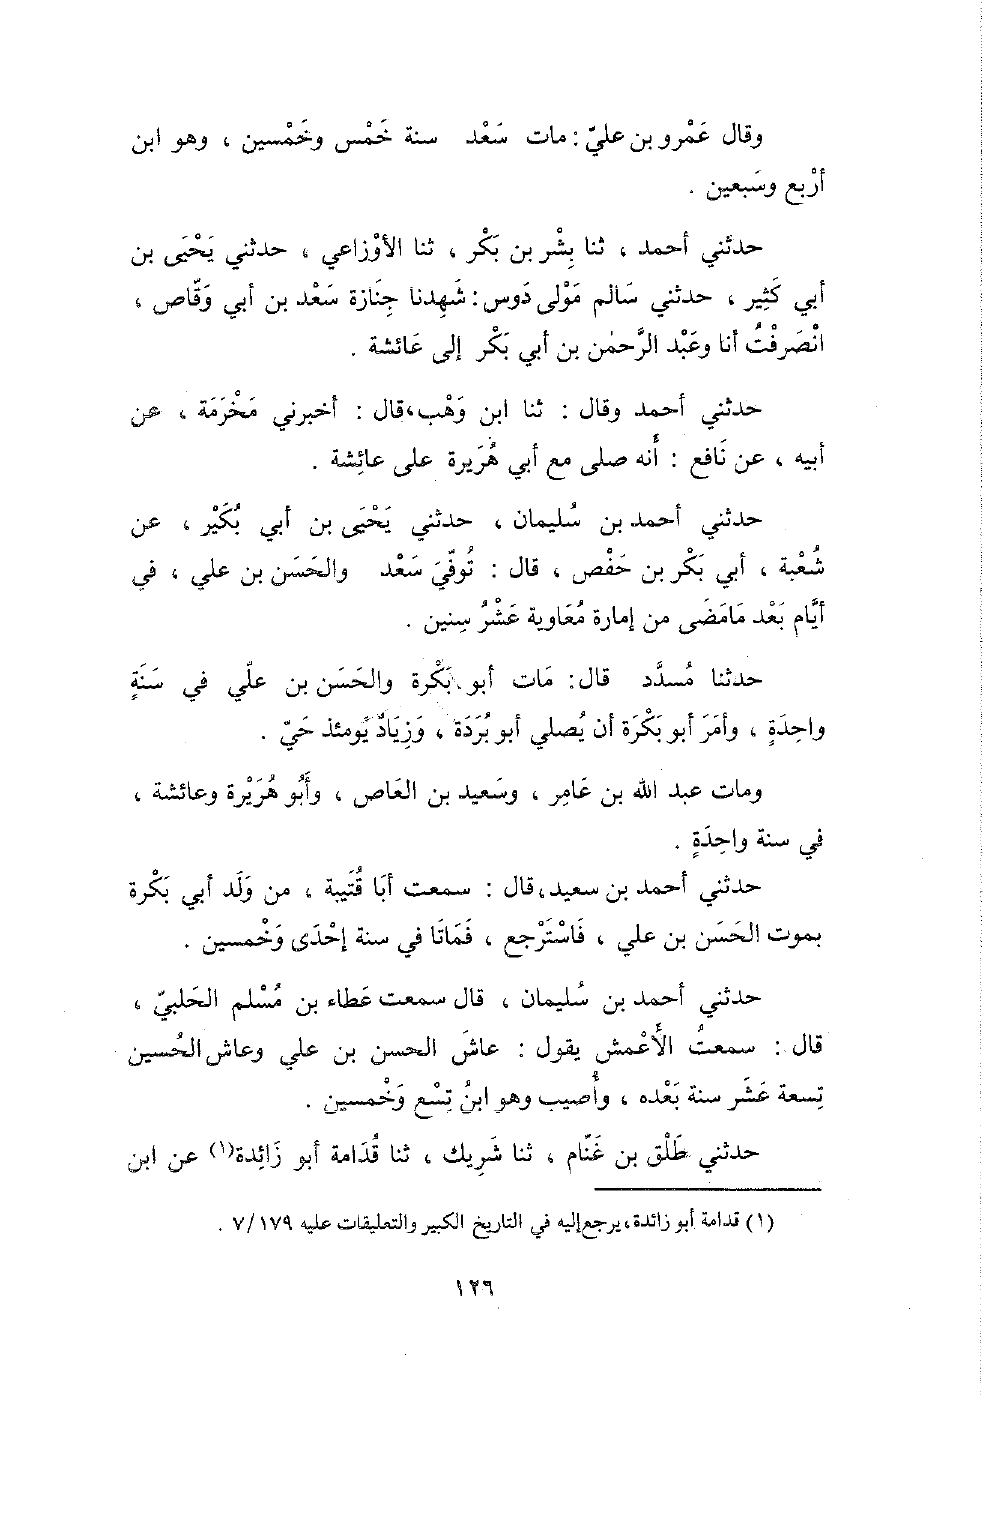 وقال عَمْرو بن عليّ : مات سَعْد سنة خَمْس وخَمْسين ، وهو ابن
أرْبع وسَبعين .
حدثني أحمد ، ثنا بِشْر بن بَكْر ، ثنا الأوْزاعي ، حدثني يَحْيَى بن
أبي كَثِير ، حدثني سَالم مَوْلى دَوس : شَهِدنا جِنَازة سَعْد بن أبي وَقّاص ،
انْصَرفْتُ أنا وعَبْد الرَّحمٰن بن أبي بَكْر إلى عَائشة .
حدثني أحمد وقال : ثنا ابن وَهْب ، قال : أخبرني مَخْرَمَة ، عن
أبيه ، عن نَافع : أَنه صلى مع أبي هُرَيرة على عائِشة .
حدثني أحمد بن سُليمان ، حدثني يَحْيَى بن أبي بُكَيْر ، عن
شُعْبة ، أبي بَكْر بن حَفْص ، قال : تُوفّيَ سَعْد والحَسَن بن علي ، في
أيَّام بَعْد مَامَضَى من إمارة مُعَاوية عَشْرُ سِنين .
حدثنا مُسدَّد قال : مَات أبو بَكْرة والحَسَن بن علّي في سَنَةٍ
واحِدَةٍ ، وأمَرَ أبو بَكْرَة أن يُصلي أبو بُرَدَة ، وَزِيَادٌ يَومئذ حَيّ .
ومات عبد الله بن عَامِر ، وسَعيد بن العَاص ، وأَبُو هُرَيْرة وعائشة ،
في سنة واحِدَةٍ .
حدثني أحمد بن سعيد ، قال : سمعت أبَا قُتَيبة ، من وَلَد أبي بَكْرة
بموت الحَسَن بن علي ، فَاسْتَرْجع ، فَمَاتَا في سنة إحْدَى وَخْمسين .
حدثني أحمد بن سُليمان ، قال سمعت عَطاء بن مُسْلم الحَلبيّ ،
قال : سمعتُ الأَعْمش يقول : عاشَ الحسن بن علي وعاش الحُسين
تِسعة عَشَر سنة بَعْده ، وأُصيب وهو ابنُ تِسْع وَخْمسين .
حدثني طَلْق بن غَنَّام ، ثنا شَرِيك ، ثنا قُدَامة أبو زَائِدة(١) عن ابن
(١) قدامة أبو زائدة ، يرجع إليه في التاريخ الكبير والتعليقات عليه ٧/١٧٩ .
١٢٦